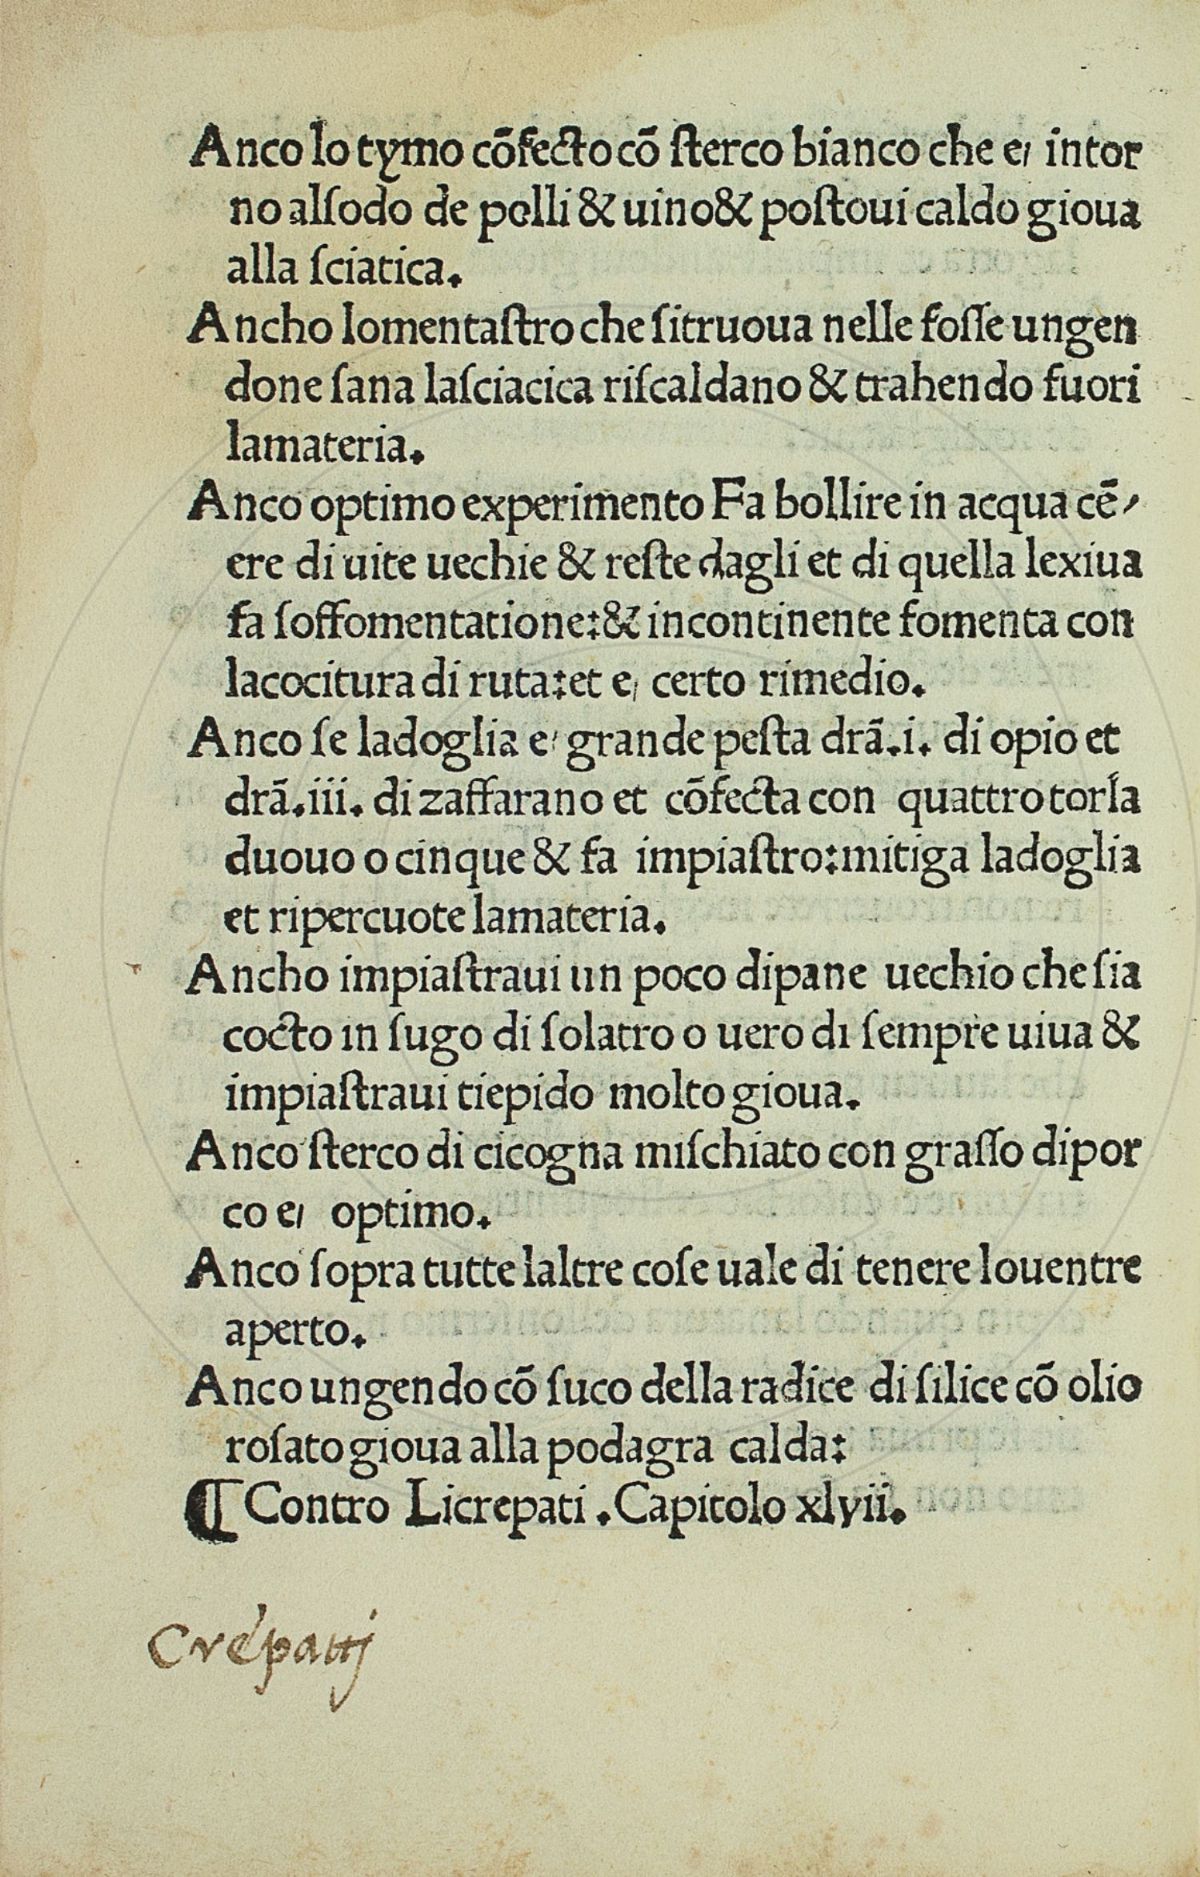 Anco lo tymo cõfecto cõ ſterco bianco che e, intor
no alſodo de polli & uino & poſtoui caldo gioua
alla ſciatica.
Ancho lomentaſtro che ſitruoua nelle foſſe ungen
done ſana laſciacica riſcaldano & trahendo fuori
lamateria.
Anco optimo experimento Fa bollire in acqua cẽ,
ere di uite uechie & reſte dagli et di quella lexiua
fa ſoffomentatione:& incontinente fomenta con
lacocitura di ruta:et e, certo rimedio.
Anco ſe ladoglia e, grande peſta drã.i. di opio et
drã.iii. di zaffarano et cõfecta con quattro torla
duouo o cinque & fa impiaſtro:mitiga ladoglia
et ripercuote lamateria.
Ancho impiaſtraui un poco dipane uechio che ſia
cocto in ſugo di ſolatro o uero di ſempre uiua &
impiaſtraui tiepido molto gioua.
Anco ſterco di cicogna miſchiato con graſſo dipor
co e, optimo.
Anco ſopra tutte laltre coſe uale di tenere louentre
aperto.
Anco ungendo cõ ſuco della radice di ſilice cõ olio
roſato gioua alla podagra calda:
¶ Contro Licrepati .Capitolo xlvii.
Crepatij